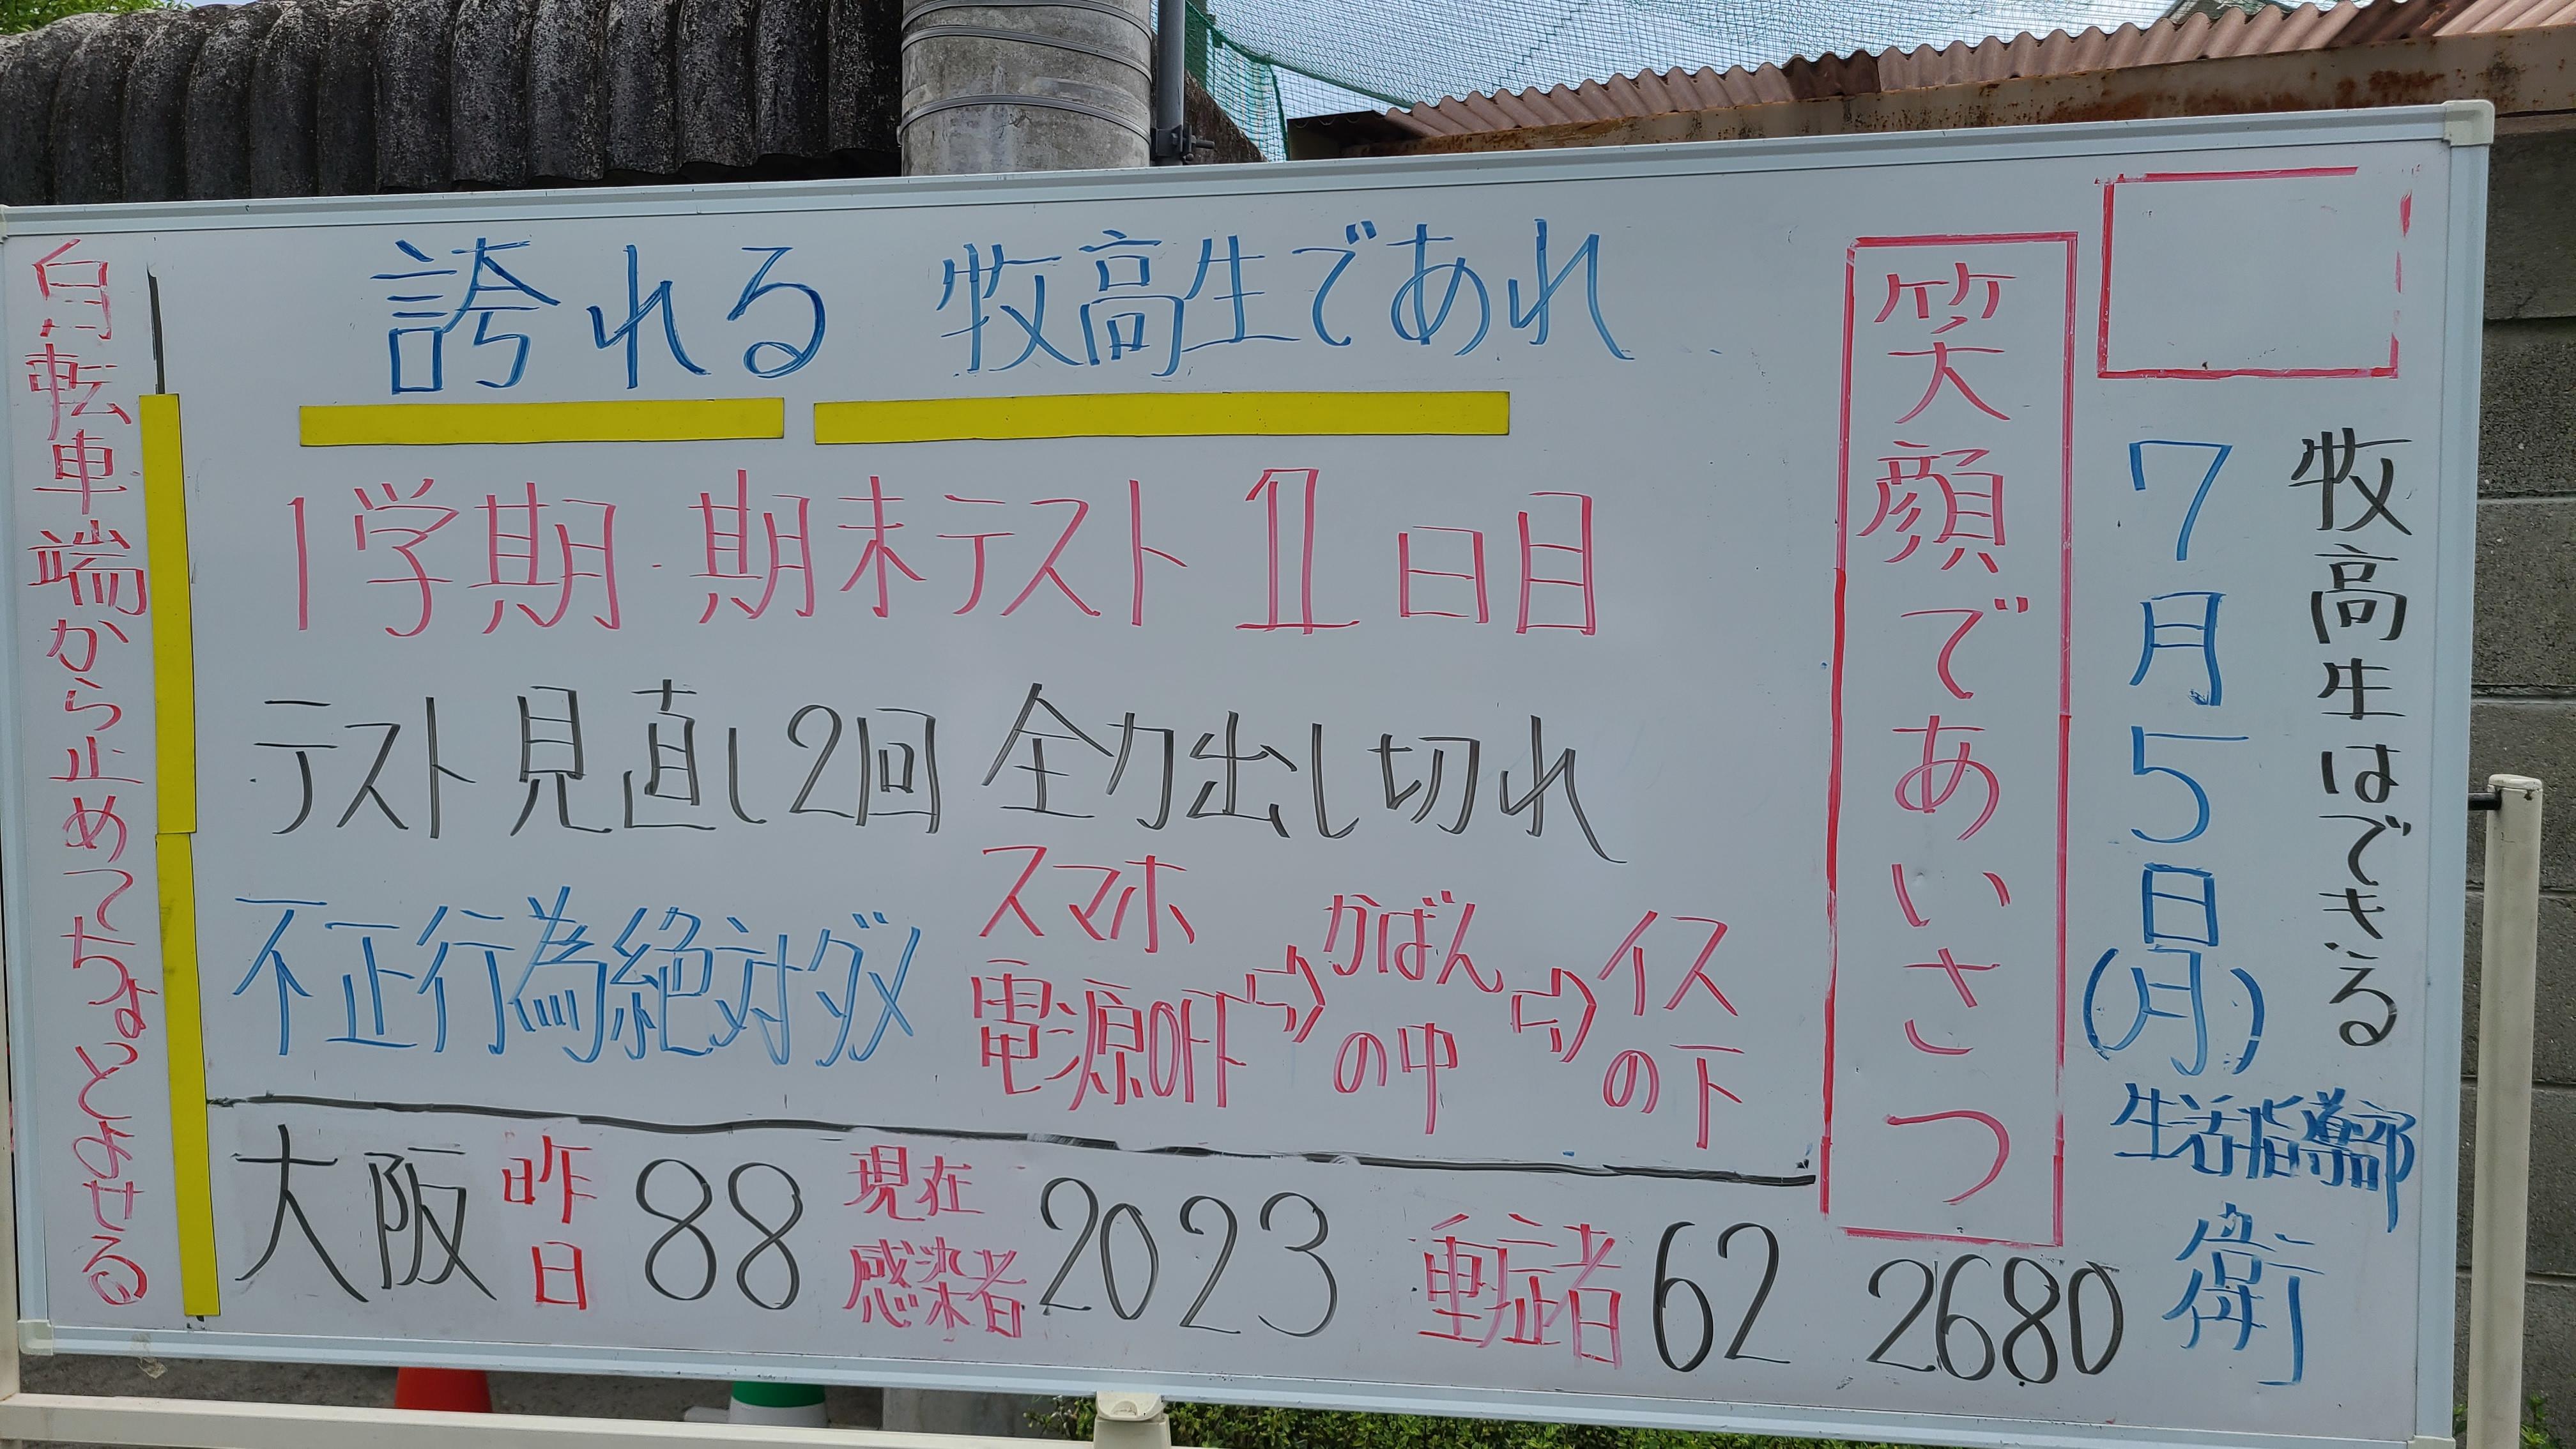 牧高生はできる
7月5日(月)
生活指導部
衛
笑顔であいさつ
誇れる 牧高生であれ
1学期・期末テスト1日目
テスト見直し2回 全力出し切れ
不正行為絶対ダメ
スマホ
電源OFF⇨かばんの中⇨イスの下
大阪 昨日 88 現在感染者 2023 重症者 62 2680
自転車端から止めてちょっとよせる